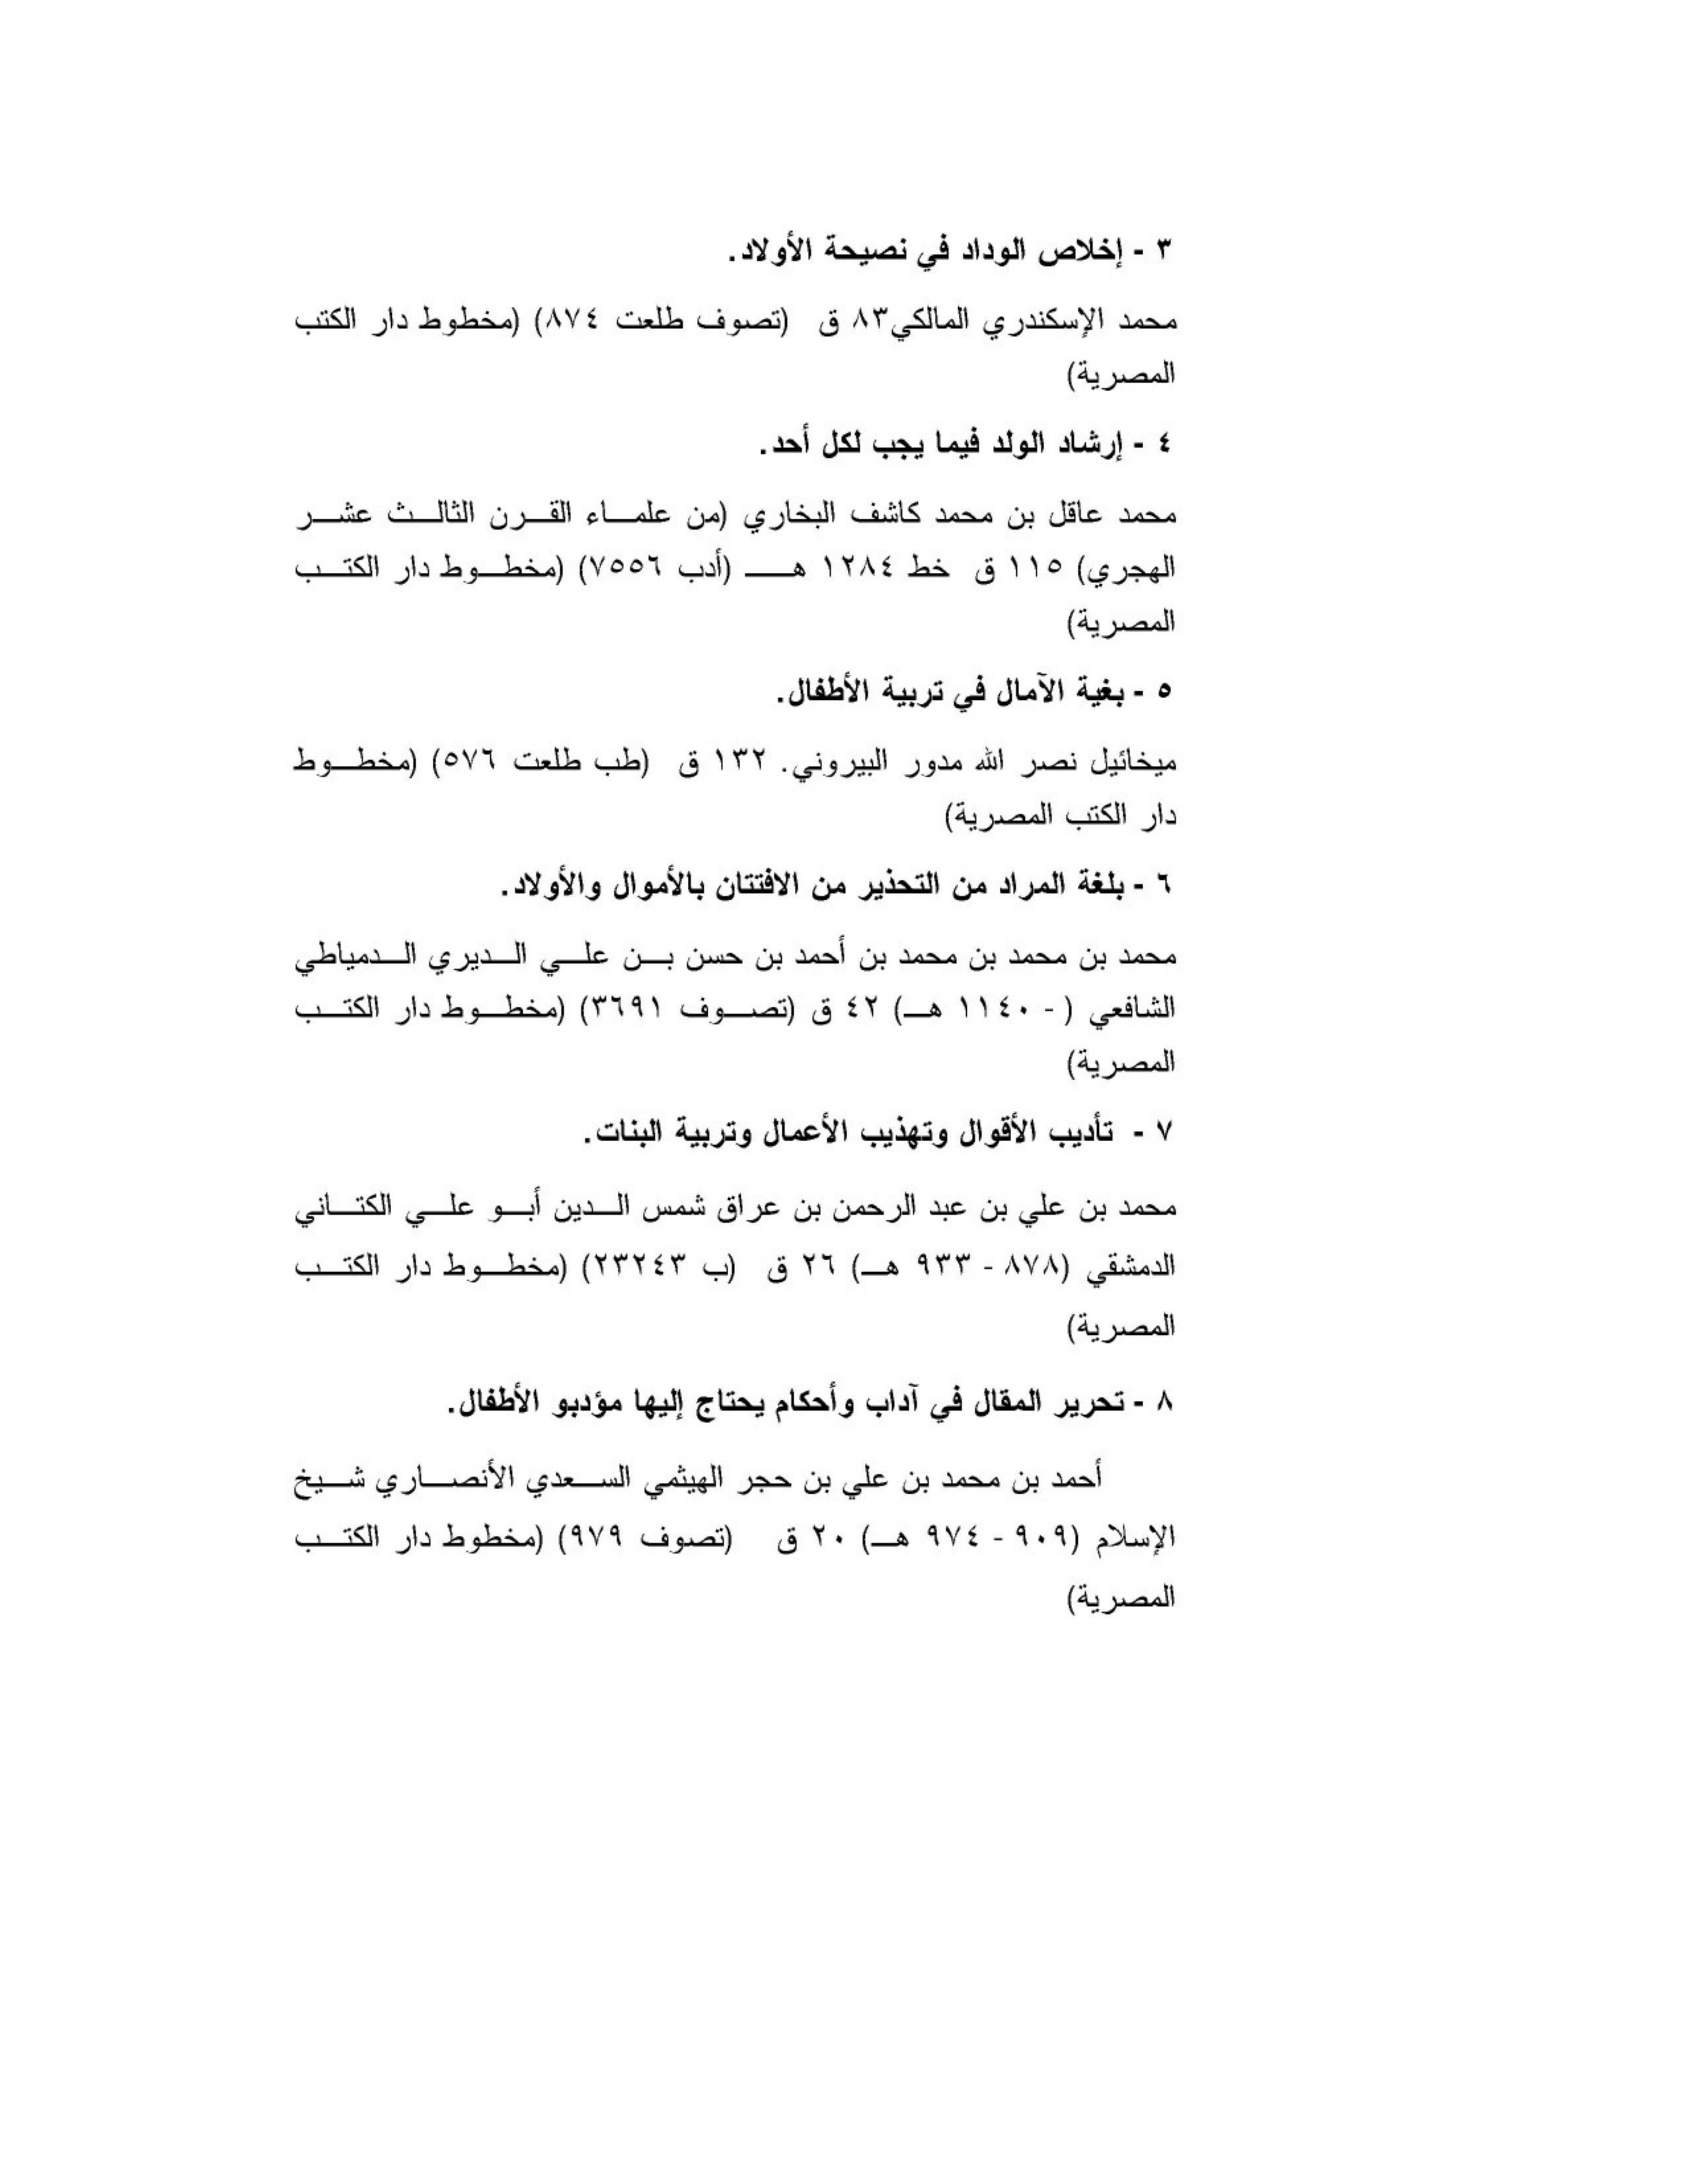 ٣ - إخلاص الوداد في نصيحة الأولاد.
محمد الإسكندري المالكي٨٣ ق (تصوف طلعت ٨٧٤) (مخطوط دار الكتب
المصرية)
٤ - إرشاد الولد فيما يجب لكل أحد.
محمد عاقل بن محمد كاشف البخاري (من علمـــاء القـــرن الثالـــث عشـــر
الهجري) ١١٥ ق خط ١٢٨٤ هـــــ (أدب ٧٥٥٦) (مخطـــوط دار الكتـــب
المصرية)
٥ - بغية الآمال في تربية الأطفال.
ميخائيل نصر الله مدور البيروني. ١٣٢ ق (طب طلعت ٥٧٦) (مخطـــوط
دار الكتب المصرية)
٦ - بلغة المراد من التحذير من الافتتان بالأموال والأولاد.
محمد بن محمد بن محمد بن أحمد بن حسن بـــن علـــي الـــديري الـــدمياطي
الشافعي ( - ١١٤٠ هـــ) ٤٢ ق (تصـــوف ٣٦٩١) (مخطـــوط دار الكتـــب
المصرية)
٧ - تأديب الأقوال وتهذيب الأعمال وتربية البنات.
محمد بن علي بن عبد الرحمن بن عراق شمس الـــدين أبـــو علـــي الكتـــاني
الدمشقي (٨٧٨ - ٩٣٣ هـــ) ٢٦ ق (ب ٢٣٢٤٣) (مخطـــوط دار الكتـــب
المصرية)
٨ - تحرير المقال في آداب وأحكام يحتاج إليها مؤدبو الأطفال.
أحمد بن محمد بن علي بن حجر الهيثمي الســـعدي الأنصـــاري شـــيخ
الإسلام (٩٠٩ - ٩٧٤ هـــ) ٢٠ ق (تصوف ٩٧٩) (مخطوط دار الكتـــب
المصرية)